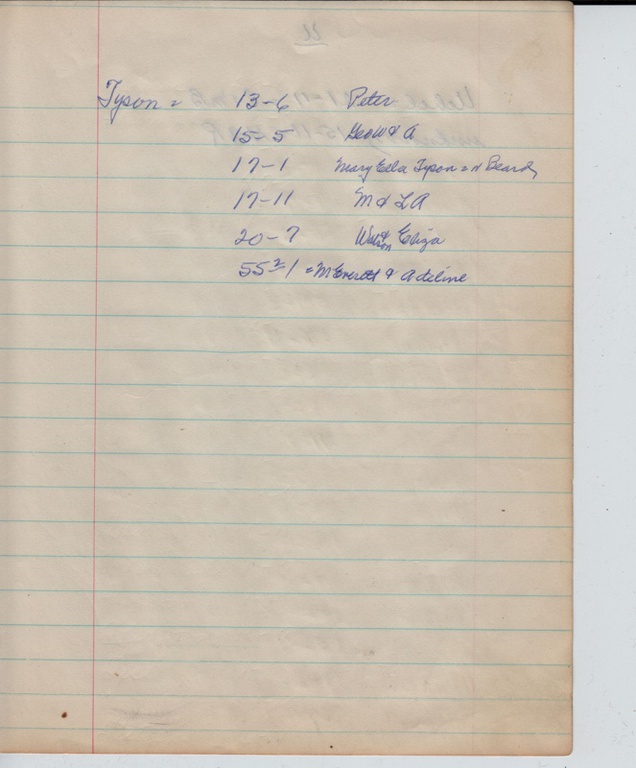 Tyson = 13-6 Peter
15-5 Geo W & A
17-1 Mary Ella Tyson = Beard
17-11 M & L A
20-7 Watson & Eliza
55²-1 = M Everett & Adeline